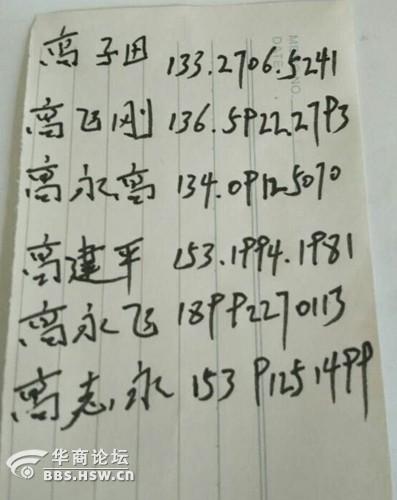 高子田 133.2706.5241
高飞刚 136.5922.2793
高永高 134.09125070
高建平 153.1994.1981
高永飞 18992270113
高志永 153 91251499
华商论坛
BBS.HSW.CN